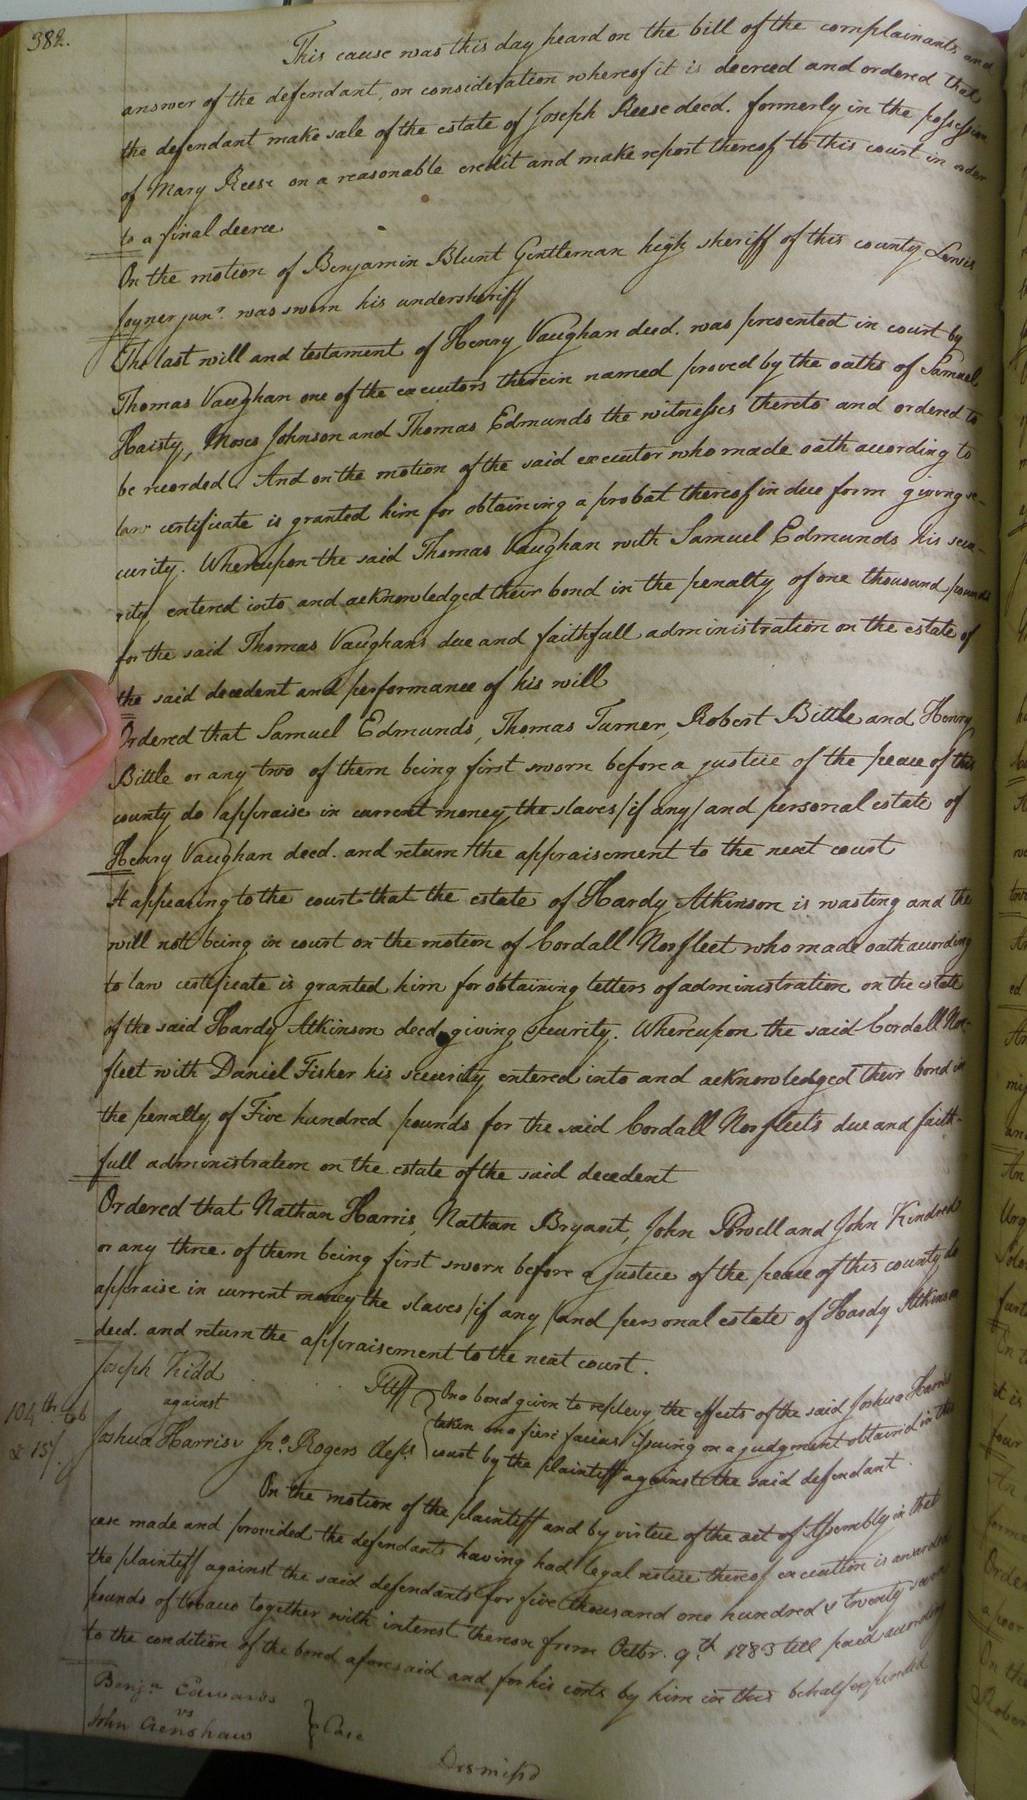 382.
This cause was this day heard on the bill of the complainants and
answer of the defendant, on consideration whereof it is decreed and ordered that
the defendant make sale of the estate of Joseph Reese deced. formerly in the possession
of Mary Reese on a reasonable credit and make report thereof to this court in order
to a final decree
On the motion of Benjamin Blunt Gentleman high sheriff of this county Lewis
Joyner junr. was sworn his undersheriff
The last will and testament of Henry Vaughan deced. was presented in court by
Thomas Vaughan one of the executors therein named proved by the oaths of Samuel
Haisty, Moses Johnson and Thomas Edmunds the witnesses thereto and ordered to
be recorded. And on the motion of the said executor who made oath according to
law certificate is granted him for obtaining a probat thereof in due form giving se-
curity. Whereupon the said Thomas Vaughan with Samuel Edmunds his secu-
rity entered into and acknowledged their bond in the penalty of one thousand pounds
for the said Thomas Vaughans due and faithfull administration on the estate of
the said decedent and performance of his will
Ordered that Samuel Edmunds, Thomas Turner, Robert Bittle and Henry
Bittle or any two of them being first sworn before a justice of the peace of this
county do appraise in current money the slaves /if any/ and personal estate of
Henry Vaughan deced. and return the appraisement to the next court
It appearing to the court that the estate of Hardy Atkinson is wasting and the
will not being in court on the motion of Cordall Norfleet who made oath according
to law certificate is granted him for obtaining letters of administration on the estate
of the said Hardy Atkinson deced giving security. Whereupon the said Cordall Nor-
fleet with Daniel Fisher his security entered into and acknowledged their bond in
the penalty of Five hundred pounds for the said Cordall Norfleets due and faith-
full administration on the estate of the said decedent
Ordered that Nathan Harris, Nathan Bryant, John Powell and John Kindred
or any three of them being first sworn before a justice of the peace of this county do
appraise in current money the slaves /if any/ and personal estate of Hardy Atkinson
deced. and return the appraisement to the next court.
Joseph Kidd Pltff
against
Joshua Harris & Jno. Rogers defts.
On a bond given to replevy the effects of the said Joshua Harris
taken on a fieri facias issuing on a judgment obtained in this
court by the plaintiff against the said defendant.
104th. tob
& 15/.
On the motion of the plaintiff and by virtue of the act of Assembly in that
case made and provided the defendants having had legal notice thereof execution is awarded
the plaintiff against the said defendants for five thousand one hundred & twenty seven
pounds of tobacco together with interest thereon from Octbr. 9th 1783 till paid according
to the condition of the bond aforesaid and for his costs by him in this behalf expended
Benja. Edwards
vs
John Crenshaw
Case
Dismissd